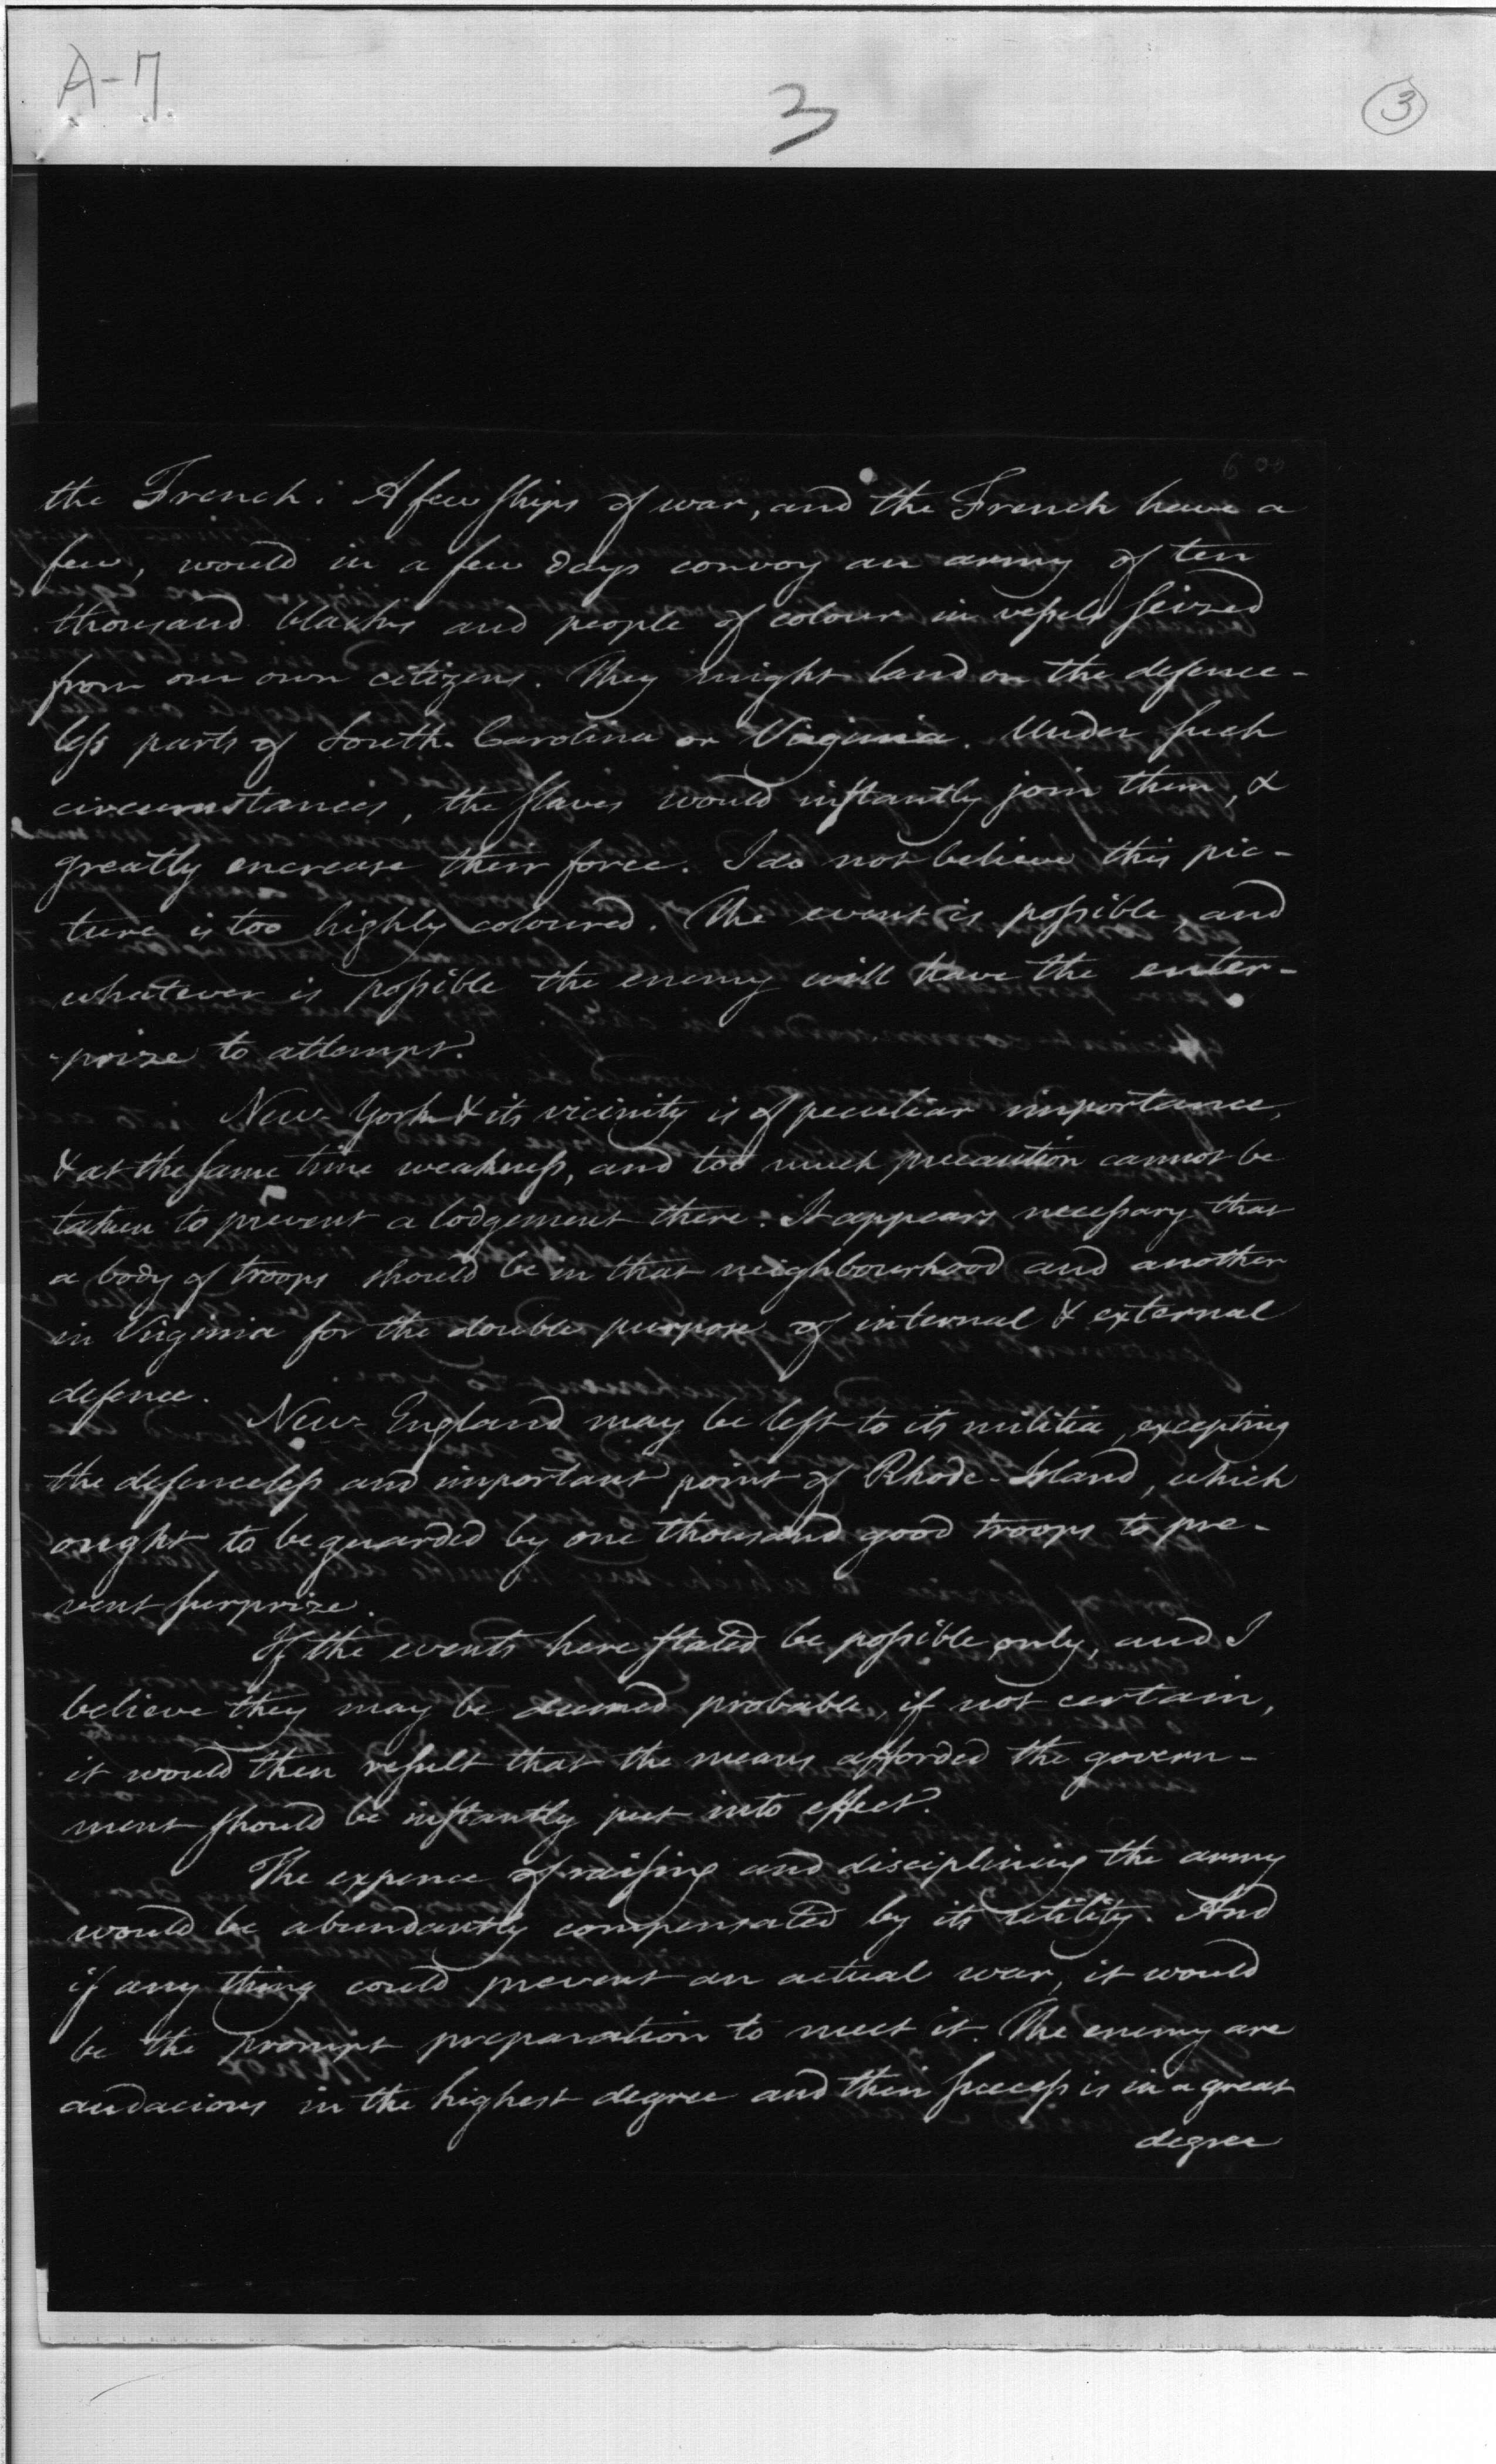 A-7.
3
3
600
the French. A few ships of war, and the French have a
few, would in a few days convoy an army of ten
thousand blacks and people of colour in vessels seized
from our own citizens. They might land on the defence-
less parts of South-Carolina or Virginia. Under such
circumstances, the slaves would instantly join them, &
greatly encrease their force. I do not believe this pic-
ture is too highly coloured. The event is possible, and
whatever is possible the enemy will have the enter-
-prize to attempt.
New-York & its vicinity is of peculiar importance,
& at the same time weakness, and too much precaution cannot be
taken to prevent a lodgement there. It appears necessary that
a body of troops should be in that neighbourhood and another
in Virginia for the double purpose of internal & external
defence.
New-England may be left to its militia, excepting
the defenceless and important point of Rhode-Island, which
ought to be guarded by one thousand good troops to pre-
vent surprize.
If the events here stated be possible only, and I
believe they may be deemed probable, if not certain,
it would then result that the means afforded the govern-
ment should be instantly put into effect.
The expence of raising and disciplining the army
would be abundantly compensated by its utility. And
if any thing could prevent an actual war, it would
be the prompt preparation to meet it. The enemy are
audacious in the highest degree and their success is in a great
degree